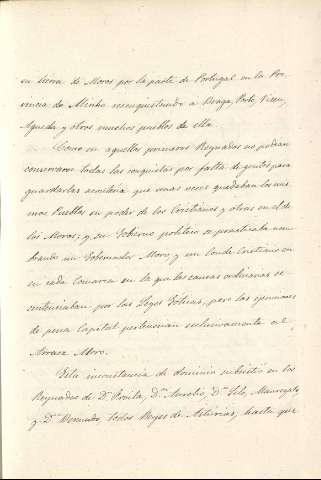 en tierra de Moros por la parte de Portugal en la Pro-
vincia do Minho reconquistando a Braga, Porto, Viseu,
Agueda y otros muchos pueblos de ella.
Como en aquellos primeros Reynados no podian
conservarse todas las conquistas por falta de gentes para
guardarlas acontecia que unas veces quedaban los mis-
mos Pueblos en poder de los Cristianos y otras en el de
los Moros; y su Gobierno politico se practicaba nom-
brando un Gobernador Moro y un Conde Cristiano en
en cada Comarca en la que las causas ordinarias se
sentenciaban por las Leyes Godas, pero las
de pena Capital pertenecian exclusivamente al
Moro.
Esta inconstancia de dominio subsistió en los
Reynados de Dn. Froila, Dn. Aurelio, Dn. Silo, Mauregato,
y Dn. Bermudo, todos Reyes de Asturias, hasta que